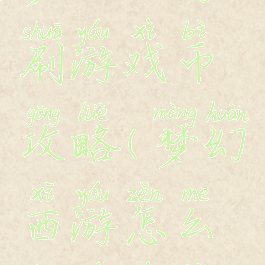 shuā yóu xì bì
刷游戏币
gōng lüè mèng huàn
攻略(梦幻
xī yóu zěn me
西游怎么